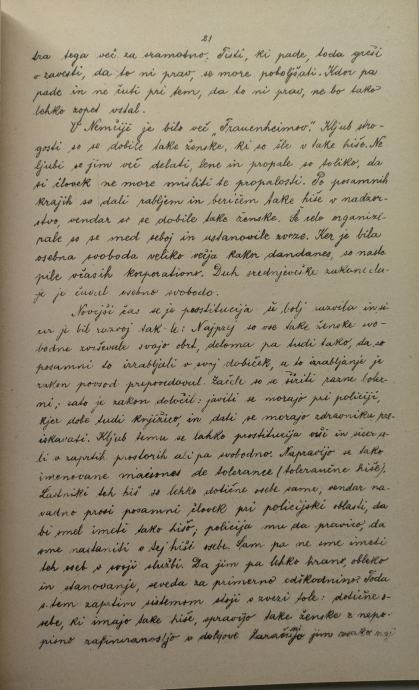 21
tra tega več za sramotno. Tisti, ki pade, toda greši
v zavesti, da to ni prav, se more poboljšati. Kdor pa
pade in ne čuti pri tem, da to ni prav, ne bo tako
lehko zopet vstal.
V Nemčiji je bilo več „Frauenheimov". Kljub stro-
gosti so se dobile take ženske, ki so šle v take hiše. Ne
ljubi se jim več delati, lene in propale so toliko, da
si človek ne more misliti te propalosti. Po posamnih
krajih so dali rabljem in beričem take hiše v nadzor-
stvo, vendar so se dobile take ženske. Še celo organizi-
rale so se med seboj in ustanovile zveze. Ker je bila
osebna svoboda veliko večja kakor dandanes, so nasto-
pile včasih korporativno. Duh srednjeveške zakonodaje
je je čuval osebno svobodo.
Novejši čas se je prostitucija še bolj razvila in si-
cer je bil razvoj tak-le: Najprej so vse take ženske svo-
bodno zvrševale svojo obrt, deloma pa tudi tako, da so
posamni to izrabljali v svoj dobiček, a to izrabljanje je
zakon povsod prepovedaval. Začele so se širiti razne bolez-
ni; zato je zakon določil: javiti se morajo pri policiji,
kjer dobe tudi knjižico, in dati se morajo zdravniku pre-
iskavati. Kljub temu se lahko prostitucija vrši in sicer a-
li v zaprtih prostorih ali pa svobodno. Napravijo se tako
imenovane maisons de tolerance (tolerančne hiše).
Lastniki teh hiš so lehko dotične osebe same, vendar na-
vadno prosi posamni človek pri policijski oblasti, da
bi smel imeti tako hišo; policija mu da pravico, da
sme nastaniti v tej hiši osebe. Sam pa ne sme imeti
teh oseb v svoji službi. Da jim pa lehko hrano, obleko
in stanovanje, seveda za primerno odškodnino. Toda
s tem zaprtim sistemom stoji v zvezi tole: dotične o-
sebe, ki imajo take hiše, spravijo take ženske z nepo-
pisno rafiniranostjo v dolgove. Zaračunijo jim vsako